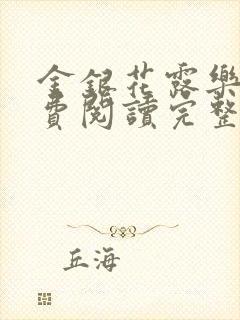 金銀花露樂
費閱讀完整
丘海